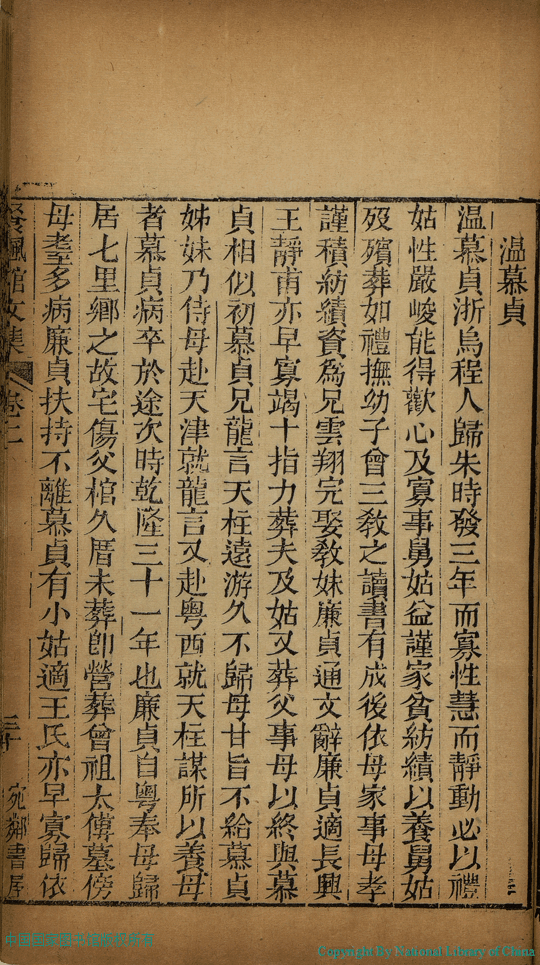 温慕貞
温慕貞浙烏程人歸朱時發三年而寡性慧而靜動必以禮
姑性嚴峻能得歡心及寡事舅姑益謹家貧紡績以養舅姑
歿殯葬如禮撫幼子曾三敎之讀書有成後依母家事母孝
謹積紡績資為兄雲翔完娶敎妹廉貞通文辭廉貞適長興
王靜甫亦早寡竭十指力葬夫及姑又葬父事母以終與慕
貞相似初慕貞兄龍言天柱遠游久不歸母甘旨不給慕貞
姊妹乃侍母赴天津就龍言又赴粵西就天柱謀所以養母
者慕貞病卒於途次時乾隆三十一年也廉貞自粵奉母歸
居七里鄉之故宅傷父棺久厝未葬卽營葬曾祖太傅墓傍
母耄多病廉貞扶持不離慕貞有小姑適王氏亦早寡歸依
館文集
卷二
宛鄰書屋
Copyright By National Library of China